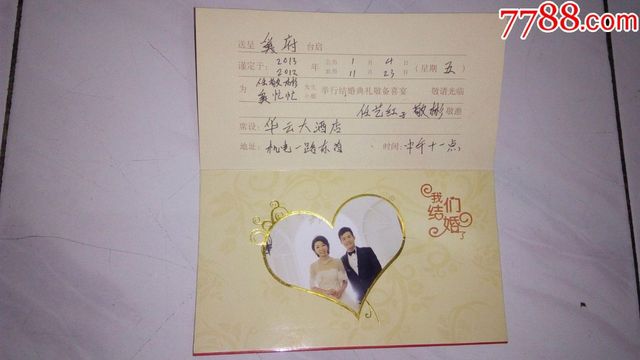 7788.com
送呈 龚府 台启
谨定于: 2013 年 公历 1 月 4 日 (星期 五)
2012 农历 11 23
为 任敬彬 先生 举行结婚典礼敬备喜宴 敬请光临
龚忙忙 小姐
任艺红 子 敬彬 敬邀
席设: 华云大酒店
地址: 机电一路东段 、 时间: 中午十一点
我们
结婚了